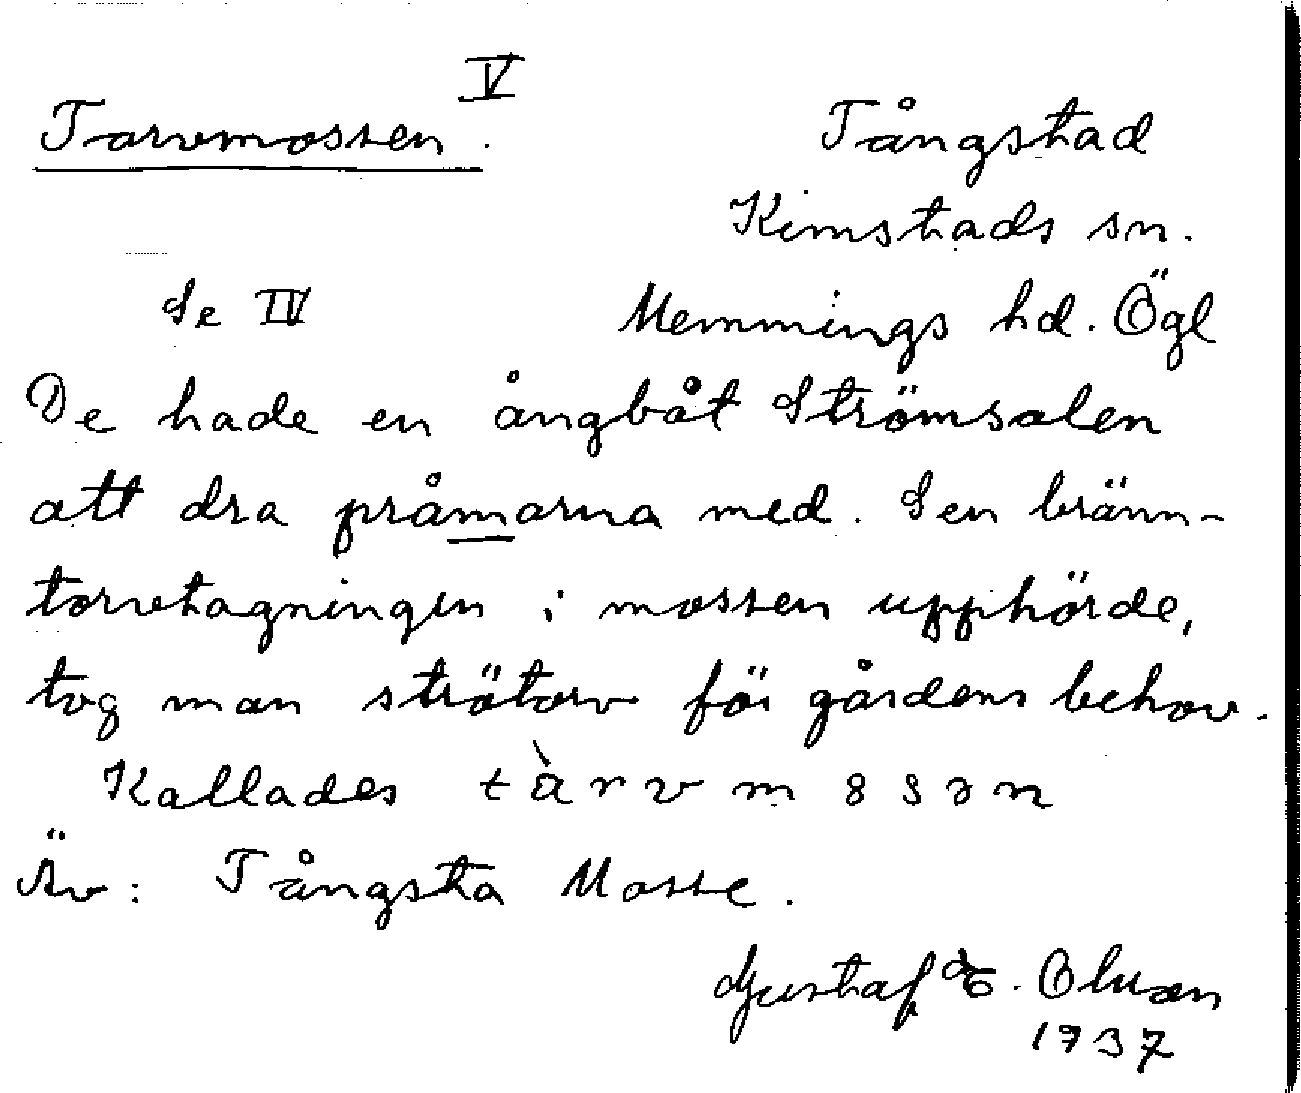 Tarvmossen. V
Tångstad
Kimstads sn.
Se IV
Memmings hd. Ögl
De hade en ångbåt Strömsalen
att dra pråmarna med. Sen bränn-
torvtagningen i mossen upphörde,
tog man strötorv för gårdens behov.
Kallades tàrvm8sən
Äv: Tångsta Mosse.
Gustaf E. Olsson
1937